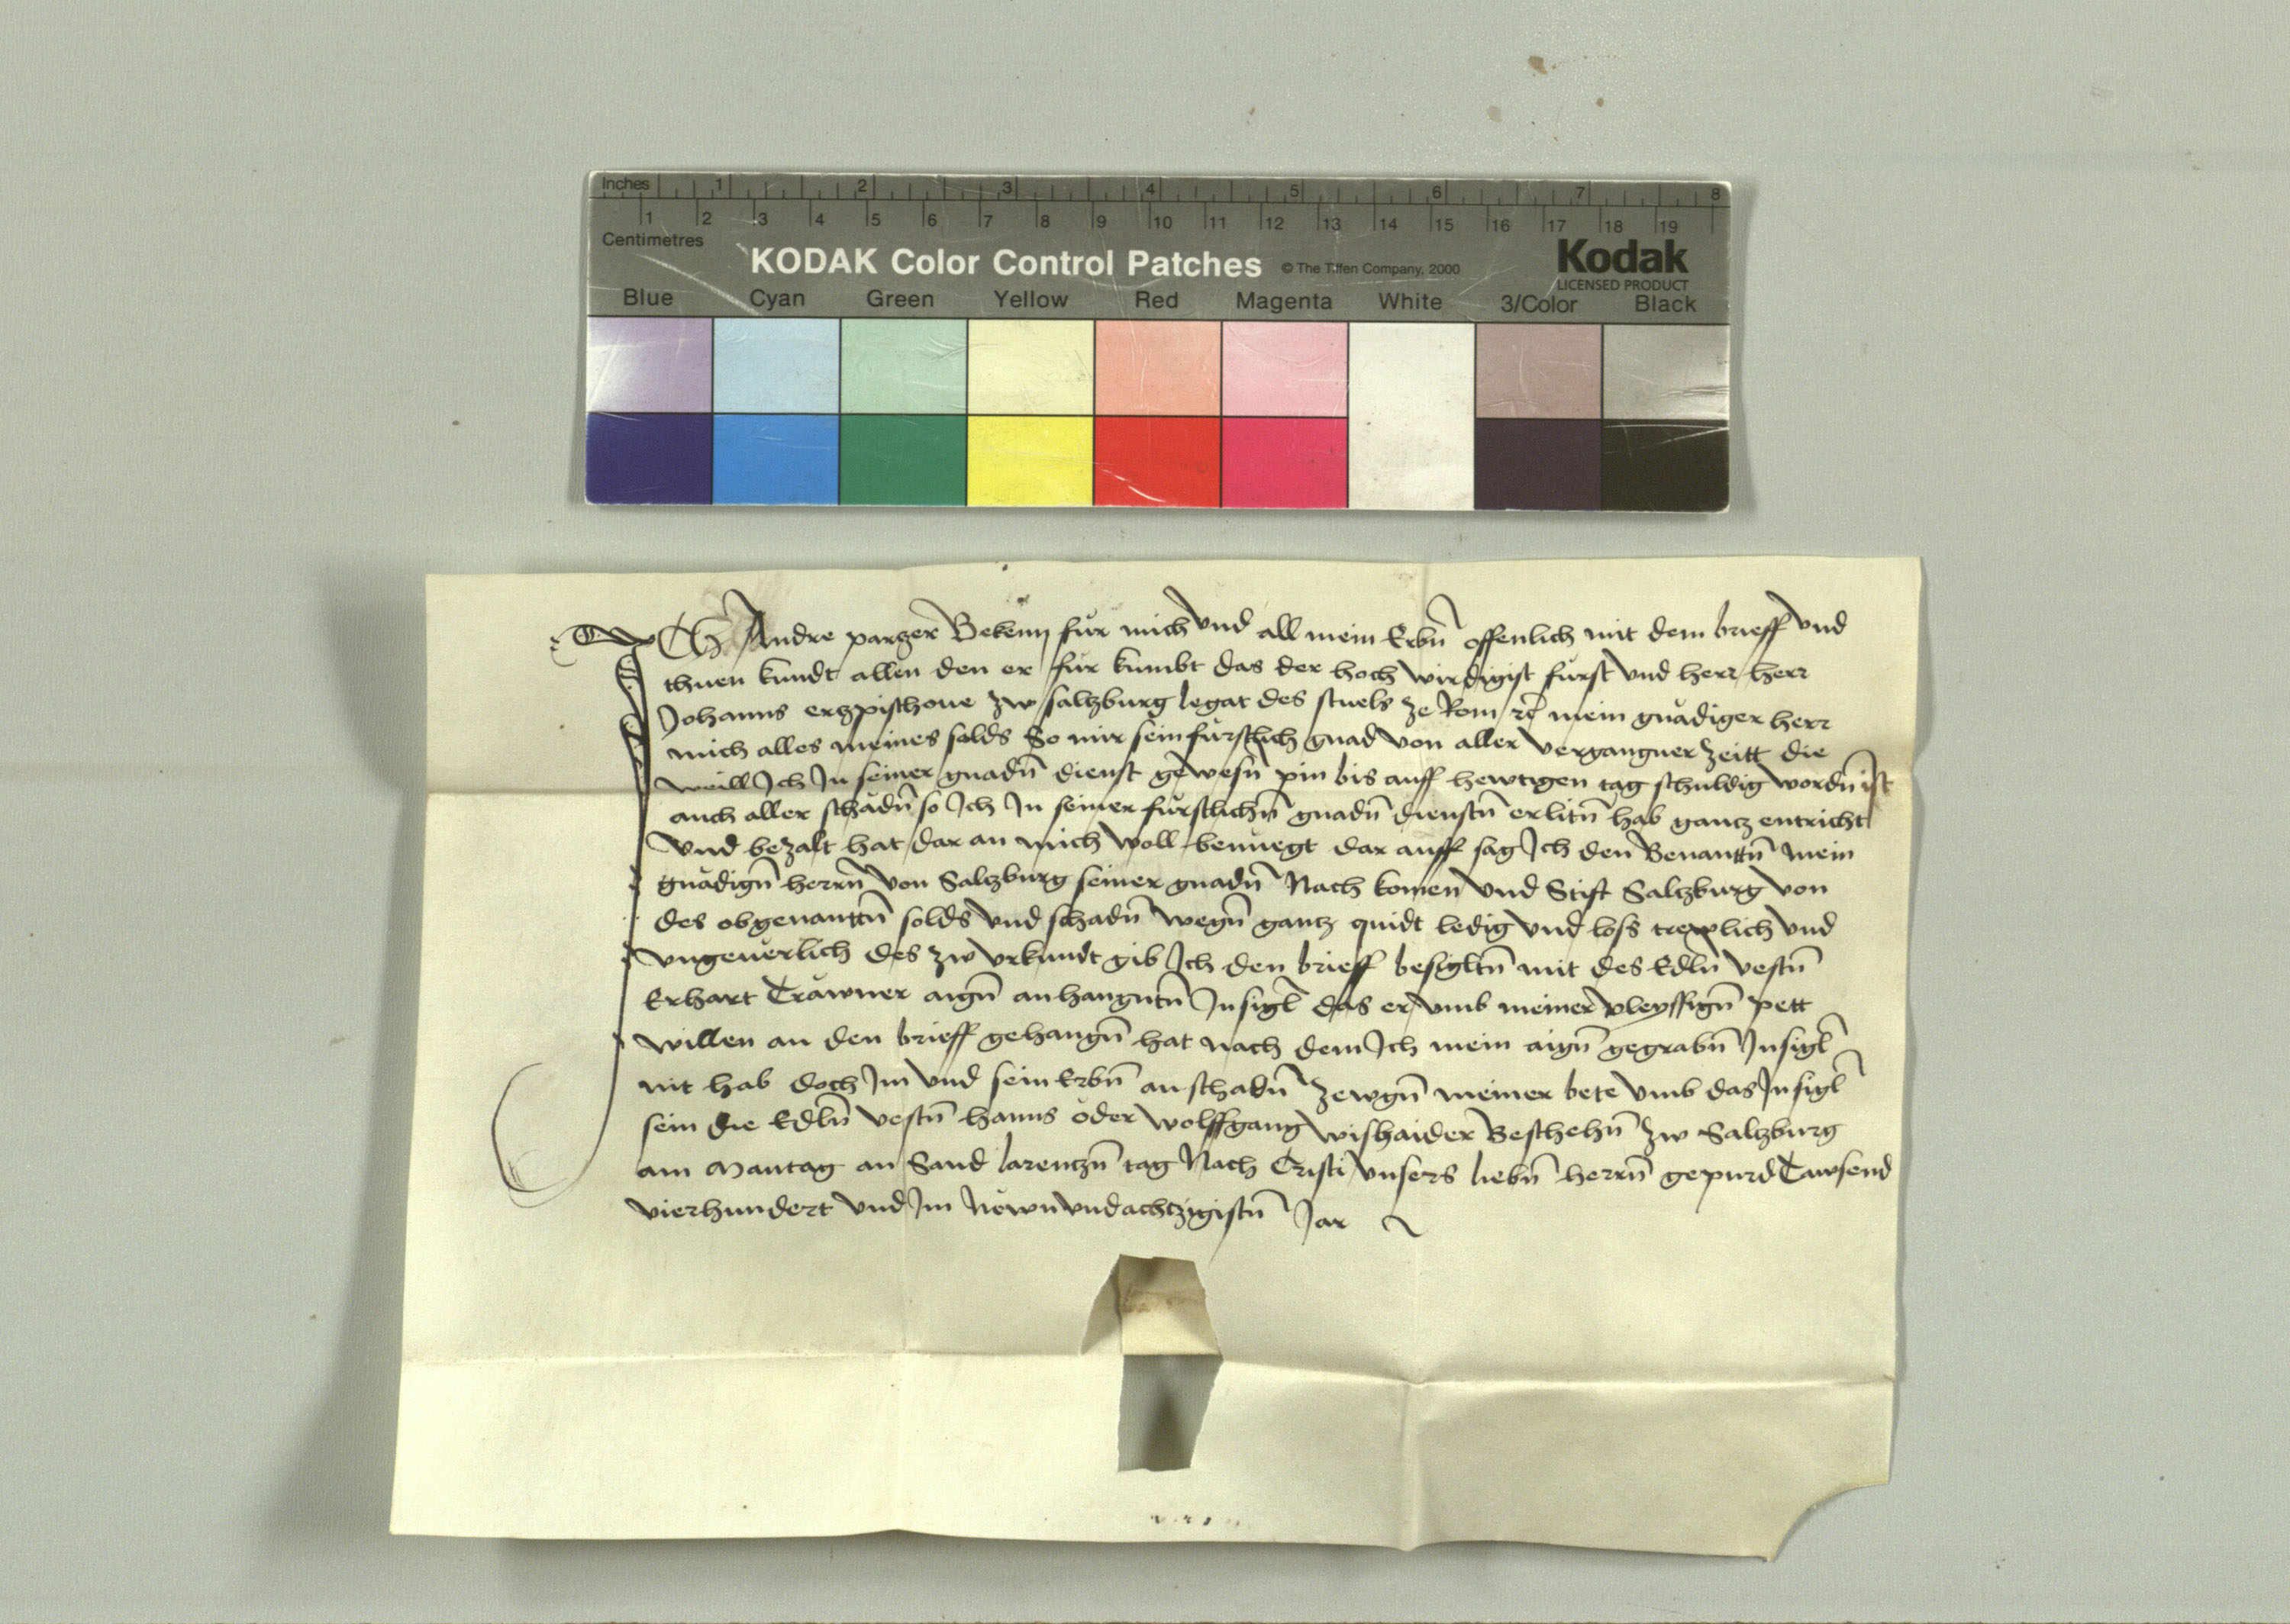 Inches 1 2 3 4 5 6 7 8
1 2 3 4 5 6 7 8 9 10 11 12 13 14 15 16 17 18 19
Centimetres
KODAK Color Control Patches © The Tiffen Company, 2000 Kodak
LICENSED PRODUCT
Blue Cyan Green Yellow Red Magenta White 3/Color Black
ICh Andre parger Bekenn für mich vnd all mein Erbn̄ offenlich mit dem brieff vnd
thuen kundt allen den er für kumbt das der hoch wirdigist fürst vnd herr herr
Johanns erczpischoue zw salczburg legat des stuels ze Rom ꝛc̄ mein gnädiger herr
mich alles meines solds So mir sein fürstlich gnad von aller vergangner zeitt die
weill Ich In seiner gnadn̄ dienst gewesn̄ pin bis auff hewtigen tag schuldig wordn̄ ist
auch aller schädn̄ so Ich In seiner fürstlichn̄ gnadn̄ dienstn̄ erlitn̄ hab gancz entricht
vnd bezalt hat dar an mich woll benuegt dar auff sag Ich den Benanttn̄ mein
gnädign̄ herrn̄ von Salczburg seiner gnadn̄ Nach komen vnd Stift Salczburg von
des obgenanttn̄ solds vnd schadn̄ wegn̄ gantz quidt ledig vnd loss trewlich vnd
vngeuerlich des zw vrkundt gib Ich den brieff besigltn̄ mit des Edln̄ vestn̄
Erhart Träwner aign̄ anhangntn̄ Insigl̄ das er vmb meiner vleyssign̄ pett
willen an den brieff gehangn̄ hat nach dem Ich mein aign̄ gegrabn̄ Insigl̄
nit hab doch Im vnd sein Erbn̄ an schadn̄ zewgn̄ meiner bete vmb das Insigl̄
sein die Edln̄ vestn̄ hanns öder wolffgang wishaider Beschehn̄ zw Salczburg
am Mantag an Sand larenczn̄ tag Nach Cristi vnsers liebn̄ herrn̄ gepurd Tawsend
vierhundert vnd Im Newnvndachtzigistn̄ Jar